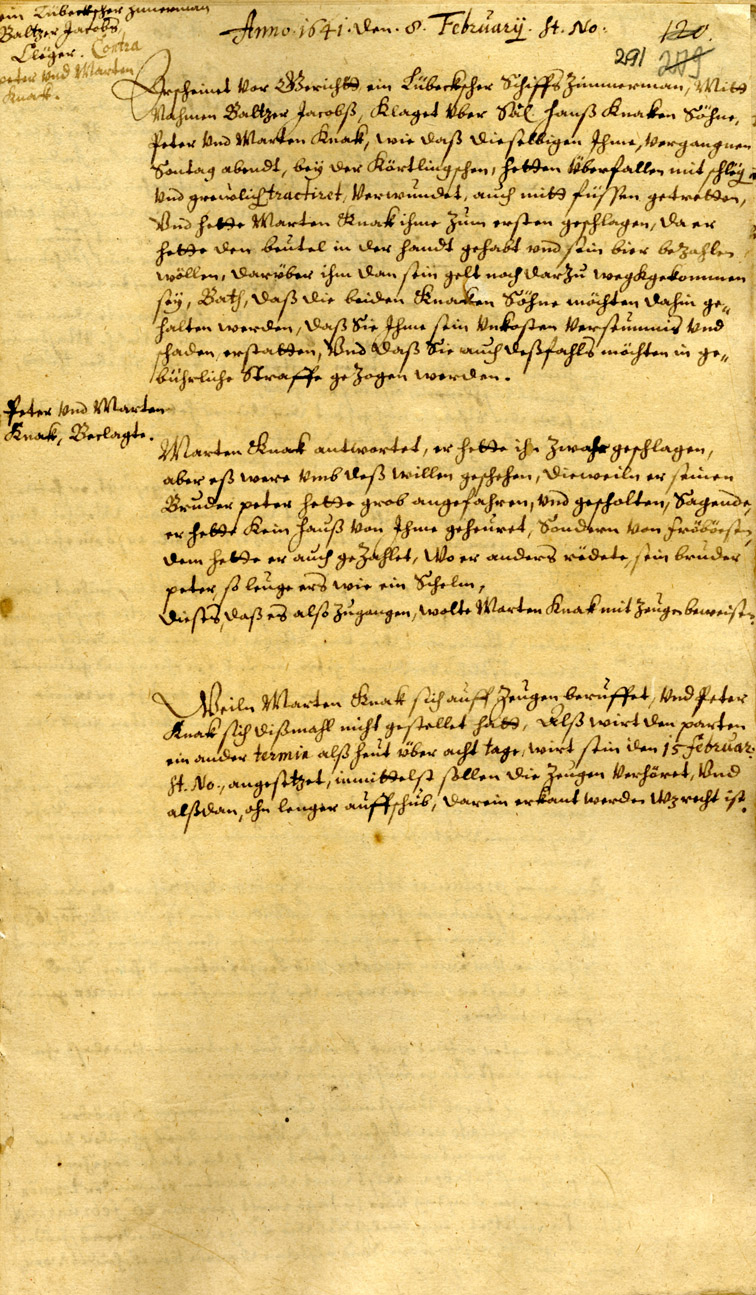 ein Lübeckscher Zimerman
Baltzer Jacobß,
Cläger. Contra
peter vnd Marten
Knak.
Anno. 1641. den. 8. Februarij. st. No.
120.
291 279
Erscheinet vor Gericht ein Lübeckscher Schiffs Zimmerman, Mitt
Nahmen Baltzer Jacobß, Klaget vber Sehl. Hanß Knaken Söhne,
Peter vnd Marten Knak, wie daß dieselbigen Ihme, vergangnen
Sontag abendt, bey der Körtlingschen, hetten vberfallen mit schlegen
vnd grewlich tractiret, verwundet, auch mitt füssen getretten,
Vnd hette Marten Knak ihme zum ersten geschlagen, da er
hette den beutel in der handt gehabt vnd sein bier bezahlen
wöllen, darüber ihm dan sein gelt noch darzu wegkgekommen
sey, Bath, daß die beiden Knacken Söhne möchten dahin ge„
halten werden, daß Sie Ihme sein vnkosten verseumnis vnd
schaden, erstatten, Vnd daß Sie auch deßfahls möchten in ge„
bührliche Straffe gezogen werden.
Peter vnd Marten
Knak, Beclagte.
Marten Knak antwortet, er hette ihn zwahr geschlagen,
aber eß were vmb deß willen geschehen, dieweiln er seinen
Bruder peter hette grob angefahren, vnd gescholten, Sagende,
er hette kein hauß von Ihme geheuret, Sondern von
dem hette er auch gezahlet, Wo er anders redete, sein bruder
peter, so leuge ers wie ein Schelm,
dieses, daß es also zugangen, wolte Marten Knak mit Zeugen beweisen.
Weiln Marten Knak sich auff Zeugen beruffet, Vnd Peter
Knak sich dißmahl nicht gestellet hatt, Alß wirt den parten
ein ander termin alß heut über acht tage, wirt sein den 15 Februar:
st. No., angesetzet, inmittelst sollen die Zeugen verhöret, Vnd
alßdan, ohn lenger auffschub, darein erkant werden wz recht ist.